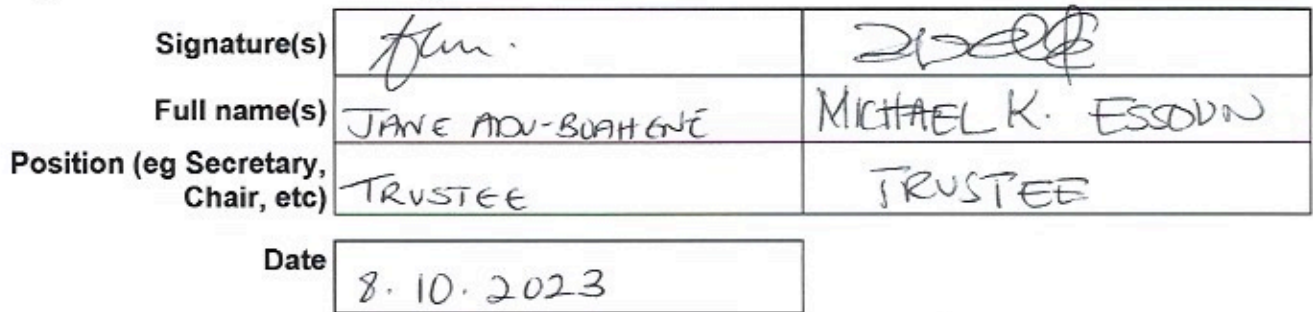 Signature(s)
Full name(s) JANE ADU-BUAHENE MICHAEL K. ESSOUN
Position (eg Secretary,
Chair, etc) TRUSTEE TRUSTEE
Date 8.10.2023